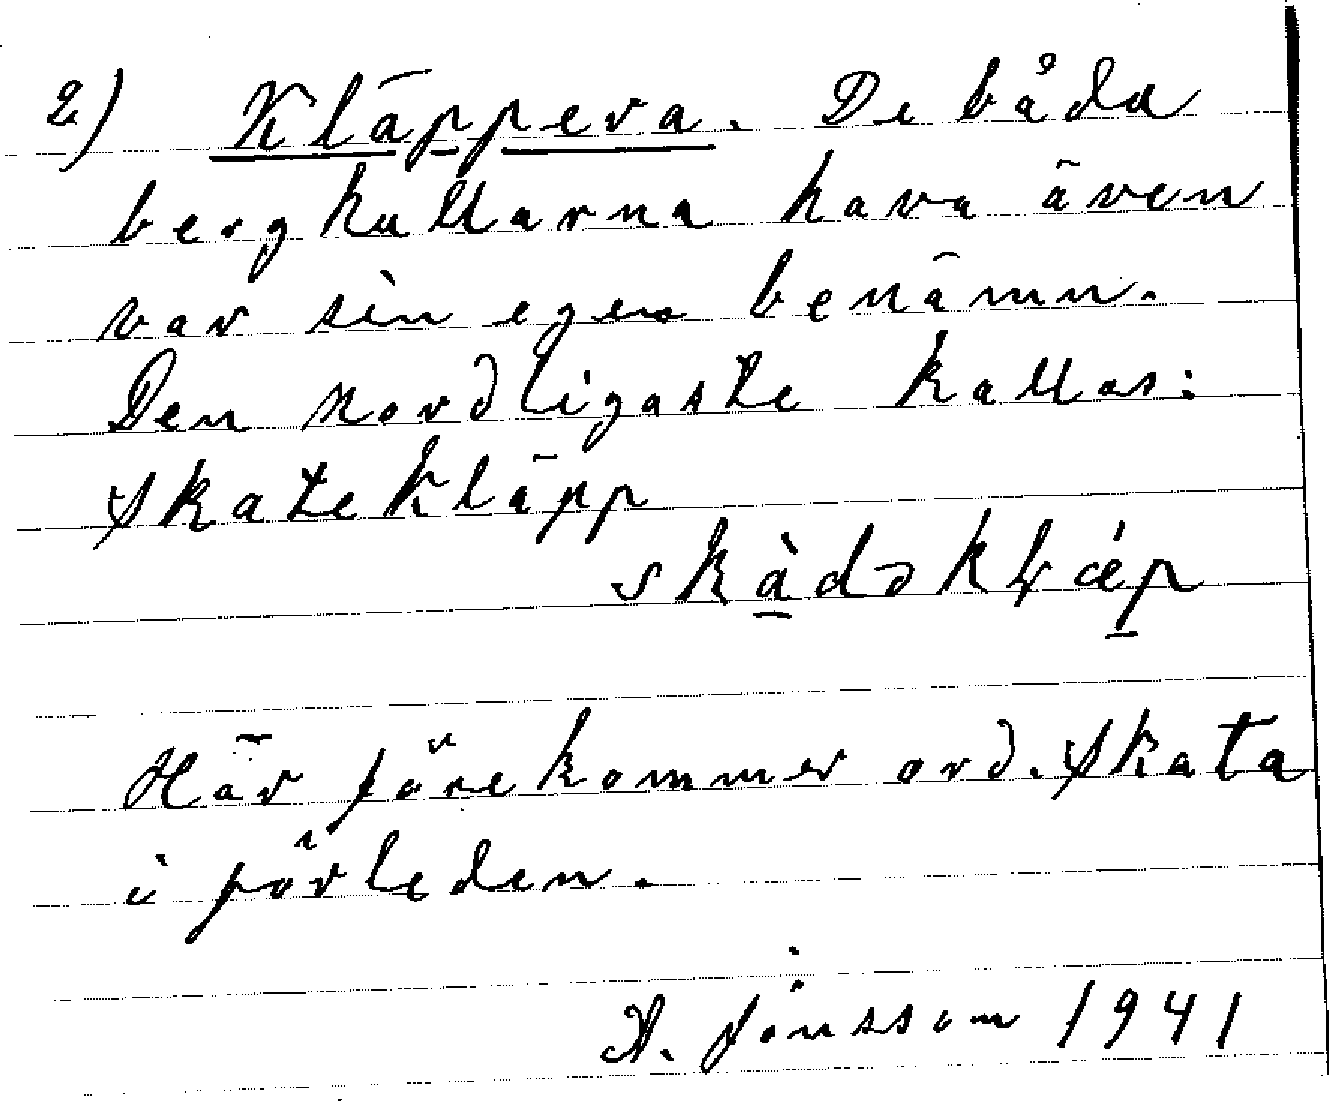 2) Kläppera. De båda
bergkullarna hava även
var sin egen benämn.
Den nordligaste kallas:
Skatekläpp
skàdəkḷǽp
Här förekommer ord. Skata
i förleden.
A. Jönsson 1941